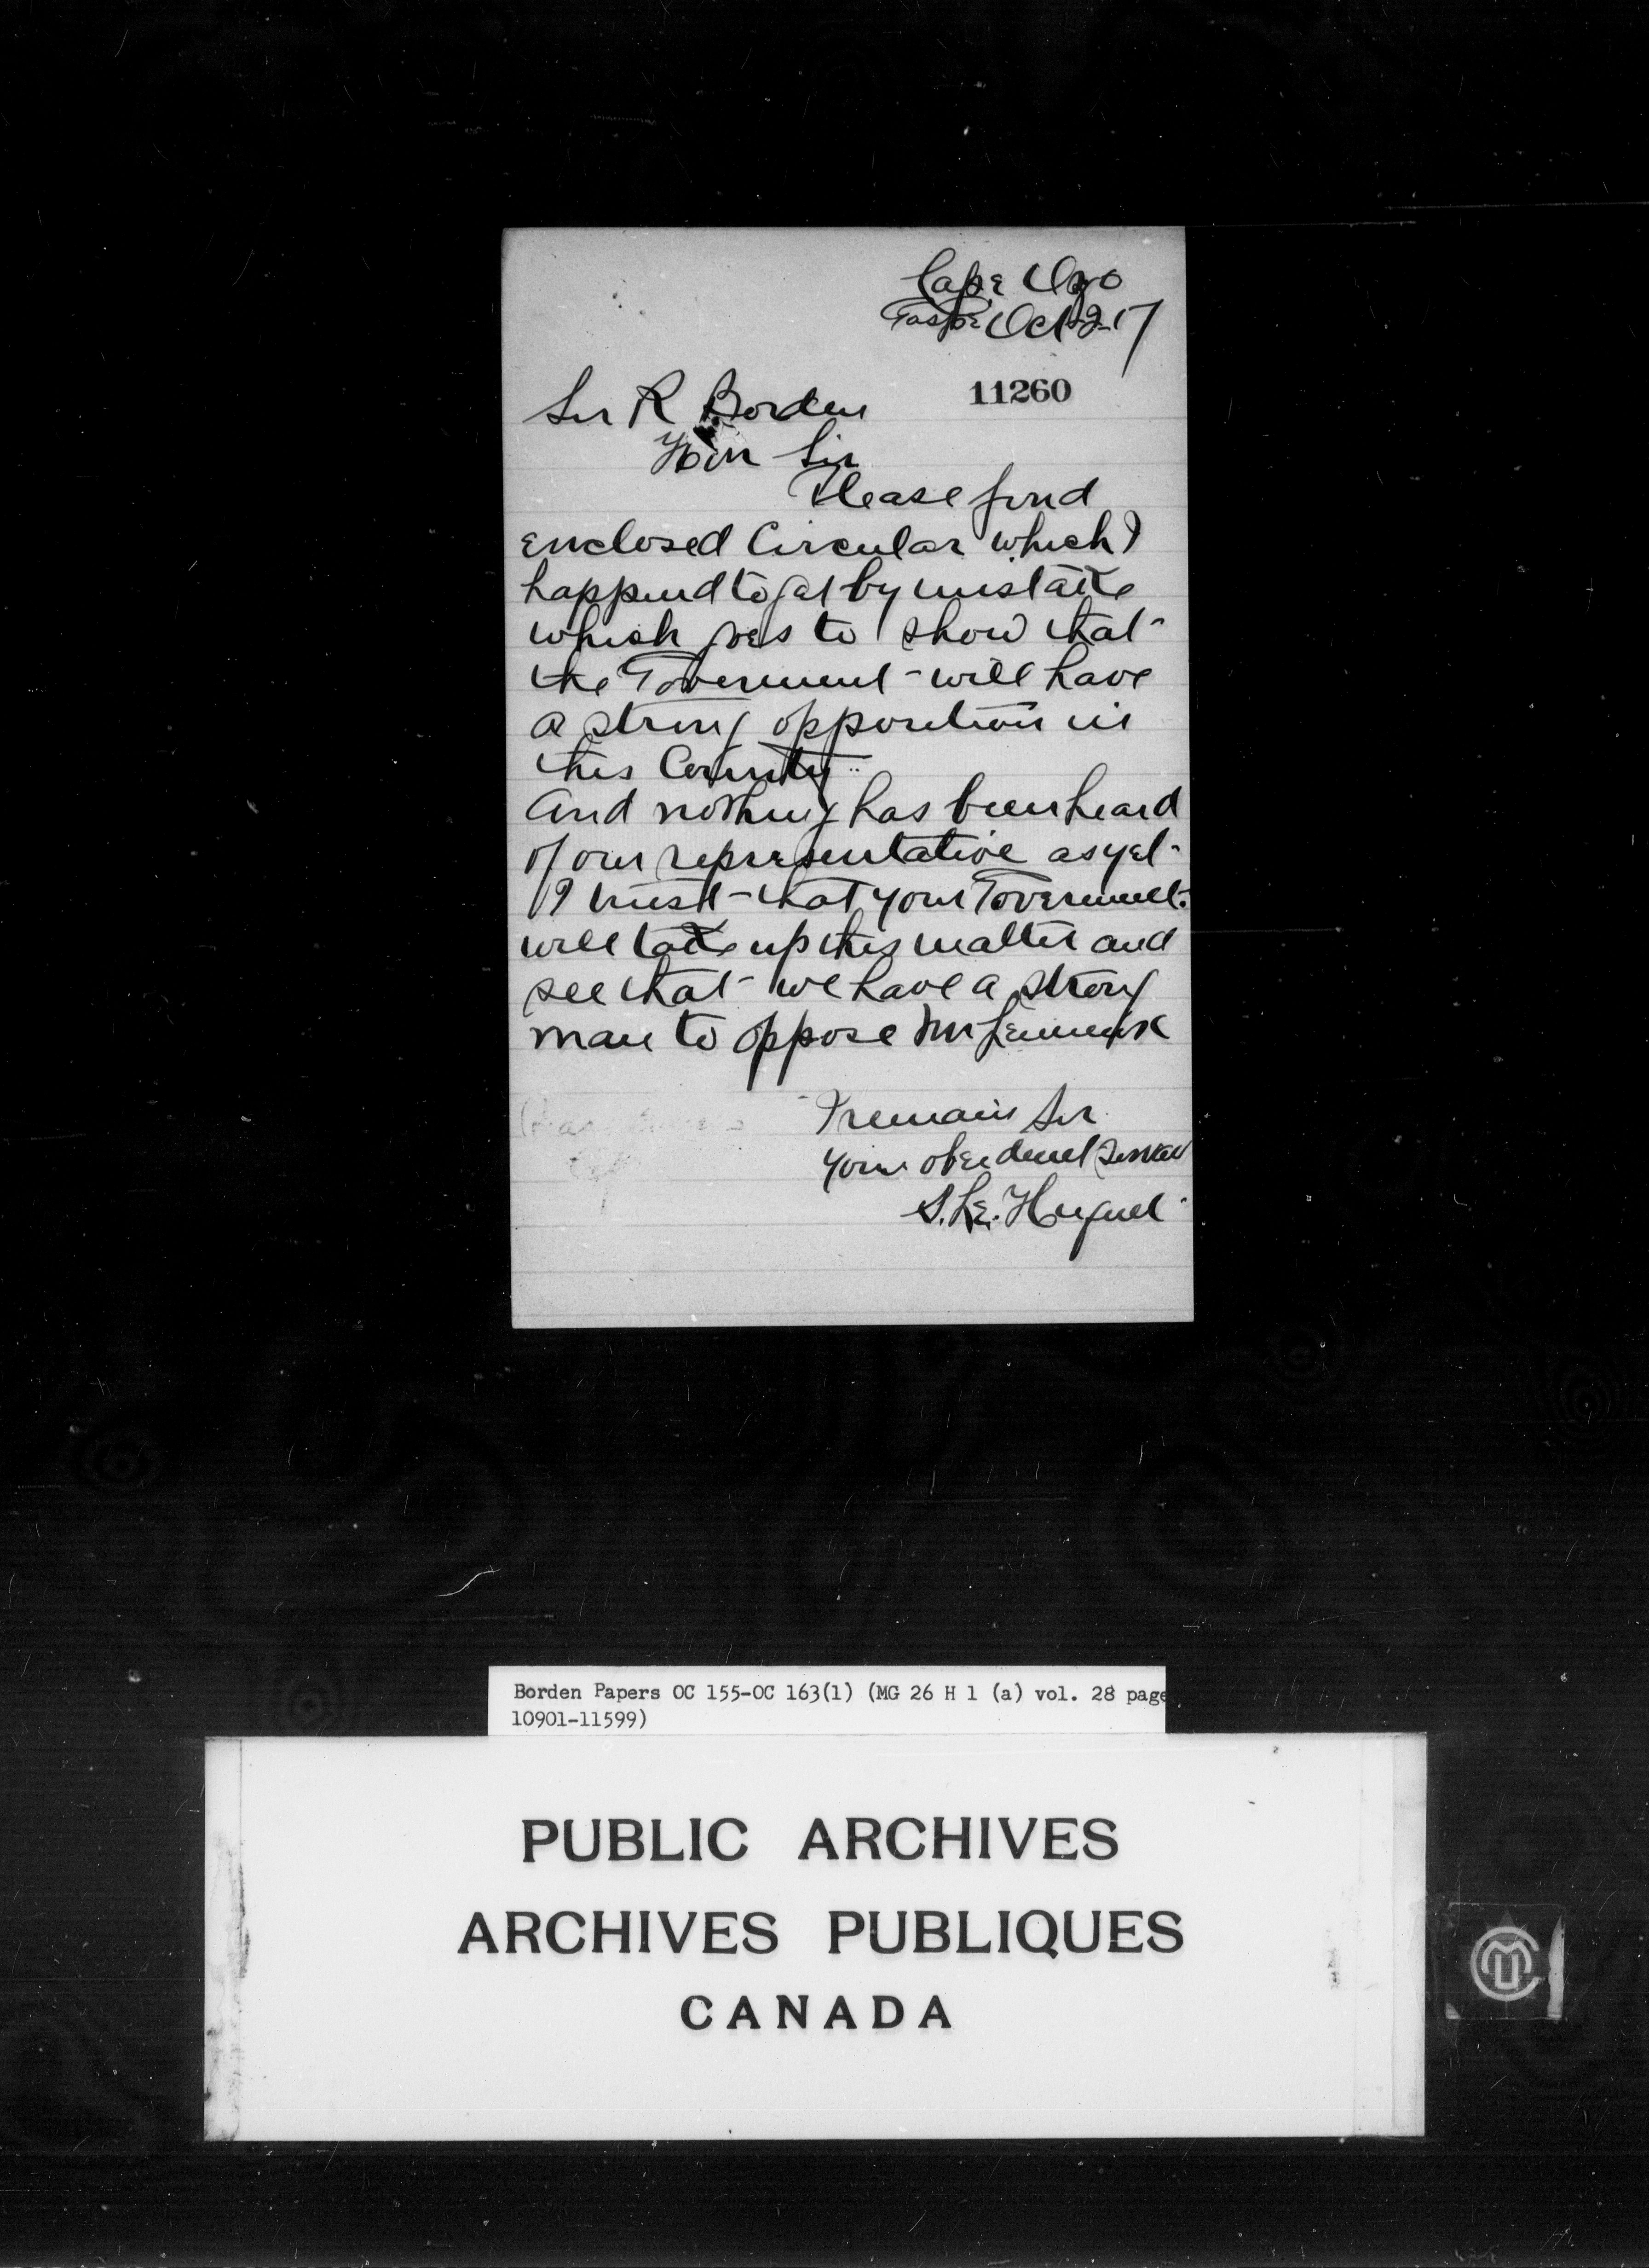 Cape Ozo
Gaspe Oct 2-17
11260
Sir R Borden
Hon Sir
Please find
enclosed Circular which I
happend to get by mistake
which goes to show that
the Goverment will have
a strong opposition in
this County
And nothing has been heard
of our representative as yet
I trust that your Goverment
will take up this matter and
see that we have a strong
man to oppose Mr Lemieux
I remain Sir
Your obendient Servant
S. Le. Huquet
Borden Papers OC 155-OC 163(1) (MG 26 H 1 (a) vol. 28 page
10901-11599)
PUBLIC ARCHIVES
ARCHIVES PUBLIQUES
CANADA